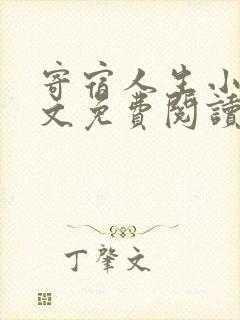 寄宿人生小
文免費閱讀
丁肇文